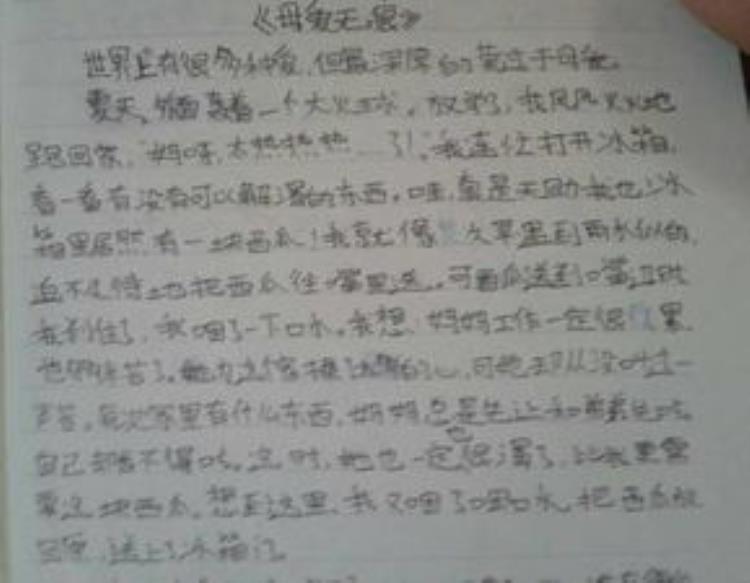 《母爱无恩》
世界上有很多种爱,但最深厚的莫过于母爱。
夏天,外面蒸着一个大火球。放学了,我风风火火地
跑回家,"妈呀,太热热热……了!"我连忙打开冰箱,
看一看有没有可以解渴的东西。哇,真是天助我也!冰
箱里居然有一块西瓜!我就像久旱遇到雨水似的,
迫不及待地把西瓜往嘴里送。可西瓜送到嘴边时
我刹住了,我咽了一下口水。我想:妈妈工作一定很累,
也够辛苦了。她为这个家操,可她却从没叫过一
声苦,每次家里有什么东西,妈妈总是先让和弟弟先吃,
自己都舍不得吃。这时,她也一定也很渴了,比我更需
要这块西瓜。想到这里,我又咽了咽口水,把西瓜放
回,送上冰箱门。